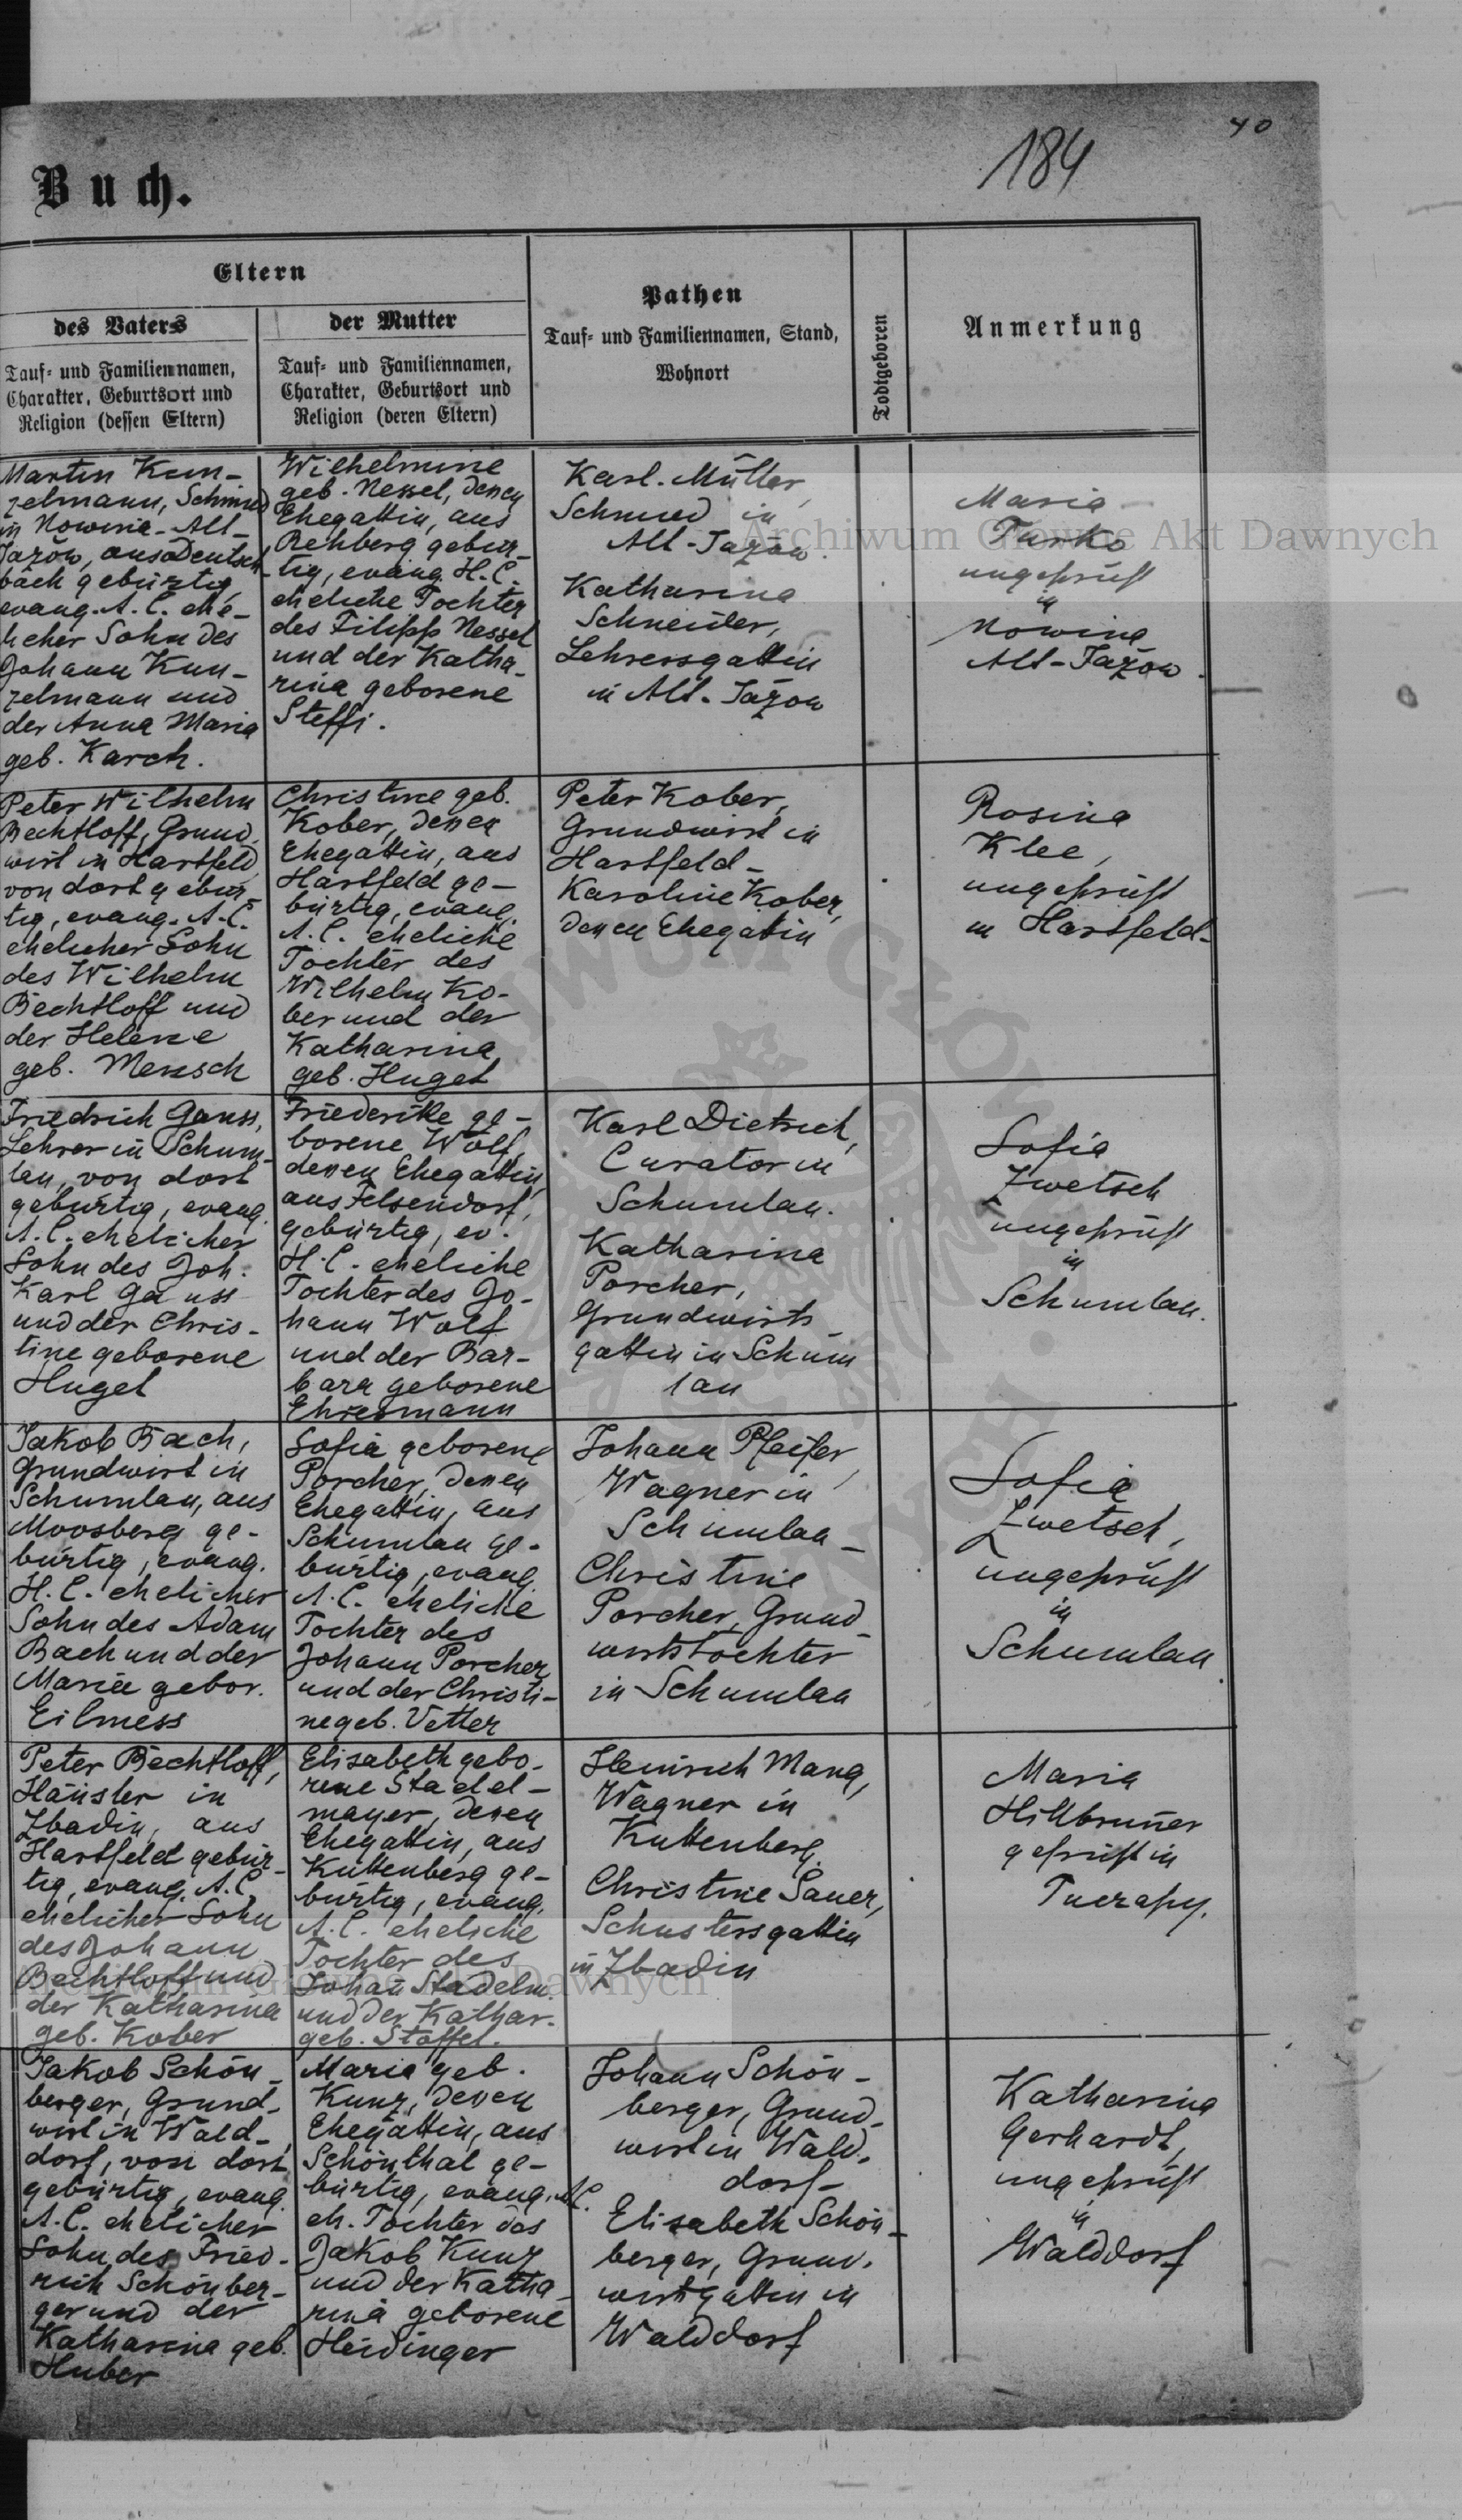 40
184
Buch.
Eltern
des Vaters
Tauf- und Familiennamen,
Charakter, Geburtsort und
Religion (dessen Eltern)
der Mutter
Tauf- und Familiennamen,
Charakter, Geburtsort und
Religion (deren Eltern)
Pathen
Tauf- und Familiennamen, Stand,
Wohnort
Todtgeboren
Anmerkung
Martin Kun-
zelmann, Schmied
in Nowina-Alt-
Jazów, aus Deutsch-
bach gebürtig,
evang. A. C. ehe-
licher Sohn des
Johann Kun-
zelmann und
der Anna Maria
geb. Karch.
Wilhelmine
geb. Nessel, denen
Ehegattin, aus
Rehberg gebür-
tig, evang. H. C.
eheliche Tochter
des Filipp Nessel
und der Katha-
rina geborene
Steffi.
Karl Müller,
Schmied in
Alt-Jazow.
Katharina
Schneider,
Lehrersgattin
in Alt-Jazow
Maria
Turko
ungeprüft
in
Nowina
Alt-Jazow.
Peter Wilhelm
Bechtloff, Grund-
wirt in Hartfeld,
von dort gebür-
tig, evang. A. C.
ehelicher Sohn
des Wilhelm
Bechtloff und
der Helene
geb. Mensch
Christine geb.
Kober, denen
Ehegattin, aus
Hartfeld ge-
bürtig, evang.
A. C. eheliche
Tochter des
Wilhelm Ko-
ber und der
Katharina
geb. Hugel
Peter Kober,
Grundwirt in
Hartfeld-
Karoline Kober,
denen Ehegattin
Rosina
Klee,
ungeprüft
in Hartfeld-
Friedrich Gauss,
Lehrer in Schum-
lau, von dort
gebürtig, evang.
A. C. ehelicher
Sohn des Joh.
Karl Gauss
und der Chris-
tine geborene
Hugel
Friederike ge-
borene Wolf,
denen Ehegattin,
aus Felsendorf,
gebürtig, ev.
H. C. eheliche
Tochter des Jo-
hann Wolf
und der Bar-
bara geborene
Ehresmann
Karl Dietrich,
Curator in
Schumlau.
Katharina
Porcher,
Grundwirts-
gattin in Schum
lau
Sofia
Zwetsch
ungeprüft
in
Schumlau.
Jakob Bach,
Grundwirt in
Schumlau, aus
Moosberg ge-
bürtig, evang.
H. C. ehelicher
Sohn des Adam
Bach und der
Maria gebor.
Eilmess
Sofia geborene
Porcher, denen
Ehegattin, aus
Schumlau ge-
bürtig, evang.
A. C. eheliche
Tochter des
Johann Porcher
und der Christi-
ne geb. Vetter
Johann Pfeifer,
Wagner in
Schumlau-
Christine
Porcher, Grund-
wirtstochter
in Schumlau
Sofia
Zwetsch,
ungeprüft
in
Schumlau
Peter Bechtloff,
Häusler in
Zbadin, aus
Hartfeld gebür-
tig, evang. A. C.
ehelicher Sohn
des Johann
Bechtloff und
der Katharina
geb. Kober
Elisabeth gebo-
rene Stadel-
mayer, denen
Ehegattin, aus
Kuttenberg ge-
bürtig, evang.
A. C. eheliche
Tochter des
Johan Stadelm.
und der Kathar.
geb. Stoffel.
Heinrich Mang,
Wagner in
Kuttenberg.
Christine Sauer,
Schustersgattin
in Zbadin
Maria
Hillbruner
geprüft in
Jakob Schön-
berger, Grund-
wirt in Wald-
dorf, von dort
gebürtig, evang.
A. C. ehelicher
Sohn des Fried-
rich Schönber-
ger und der
Katharina geb.
Huber
Maria geb.
Kunz, denen
Ehegattin, aus
Schönthal ge-
bürtig, evang. A. C.
eh. Tochter des
Jakob Kunz
und der Katha-
rina geborene
Heidinger
Johann Schön-
berger, Grund-
wirt in Wald-
dorf-
Elisabeth Schön-
berger, Grund-
wirtsgattin in
Walddorf
Katharina
Gerhardt,
ungeprüft
in
Walddorf
Archiwum Główne Akt Dawnych
Archiwum Główne Akt Dawnych